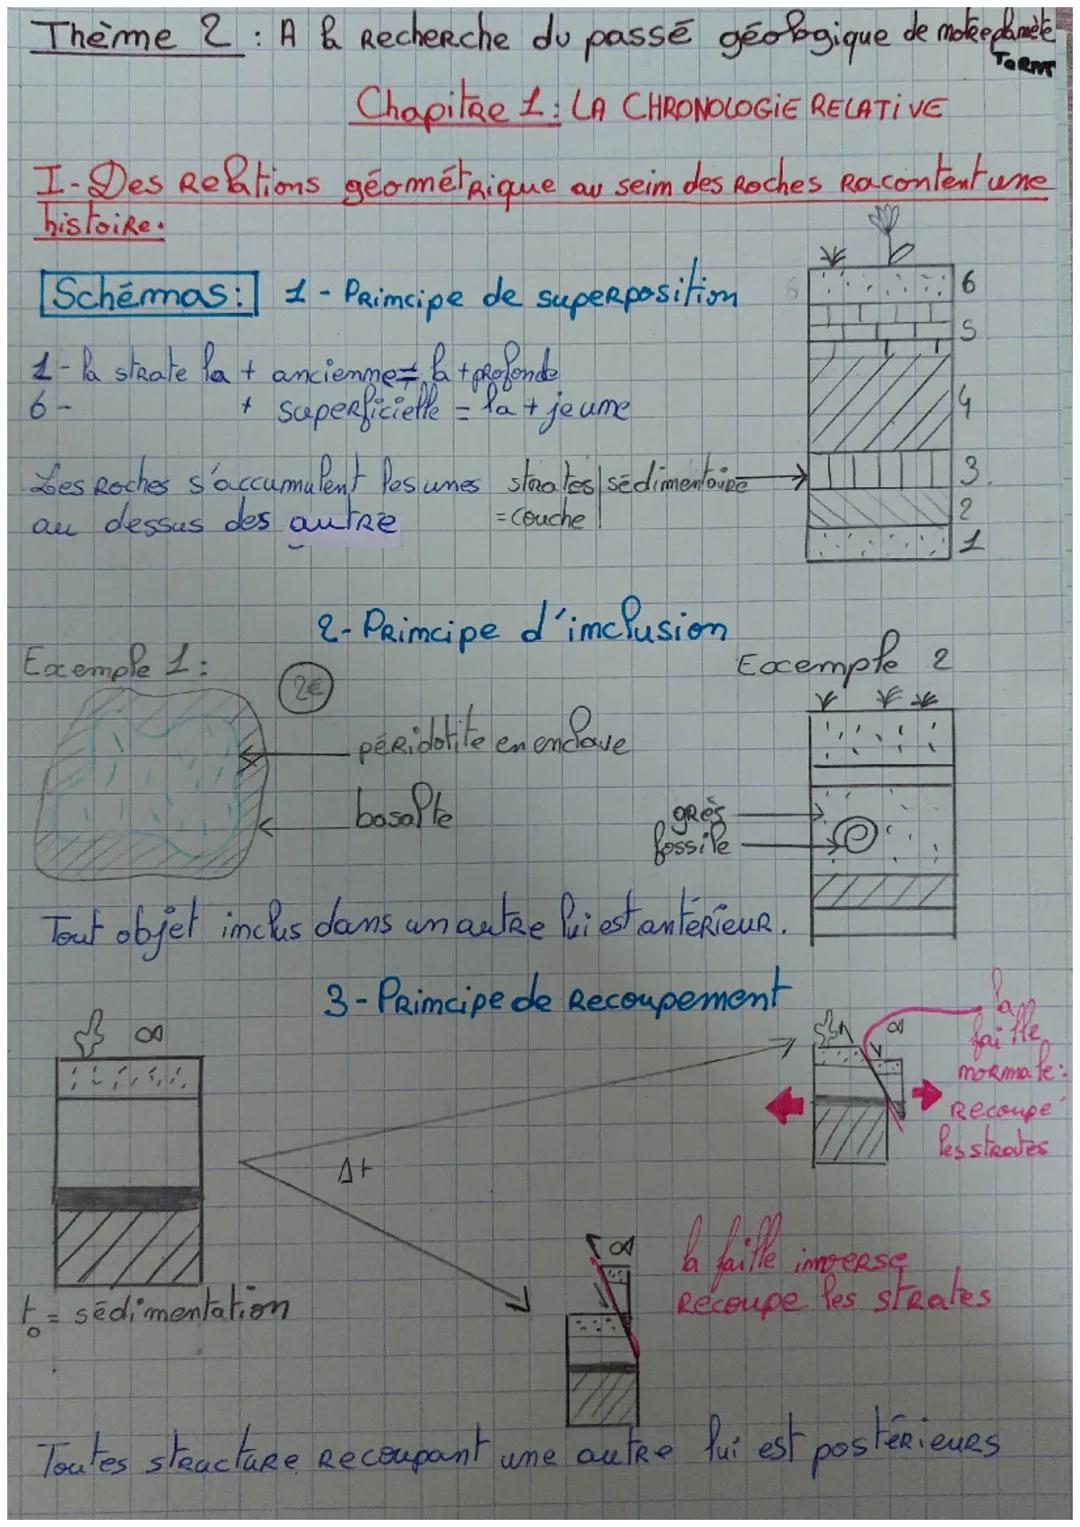 Thème 2 : A la Recherche du passé géologique de notre planète
Chapitre 1 : LA CHRONOLOGIE RELATIVE
I- Des Relations géométrique au sein des Roches Racontent une
histoire.
Schémas: 1 - Principe de superposition
1- la strate la + ancienne = la + profonde
6 - + superficielle = la + jeune
Les Roches s'accumulent les unes
au dessus des autre
strates sédimentaire
= couche
6
5
4
3
2
1
2- Principe d'inclusion
Exemple 1 :
2€
péridotite en enclave
basalte
Exemple 2
grès
fossile
Tout objet inclus dans un autre lui est antérieur.
3 - Principe de Recoupement
la
faille
normale :
Recoupe
les strates
Δt
t₀ = sédimentation
la faille inverse
Recoupe les strates
Toutes structure Recoupant une autre lui est postérieurs